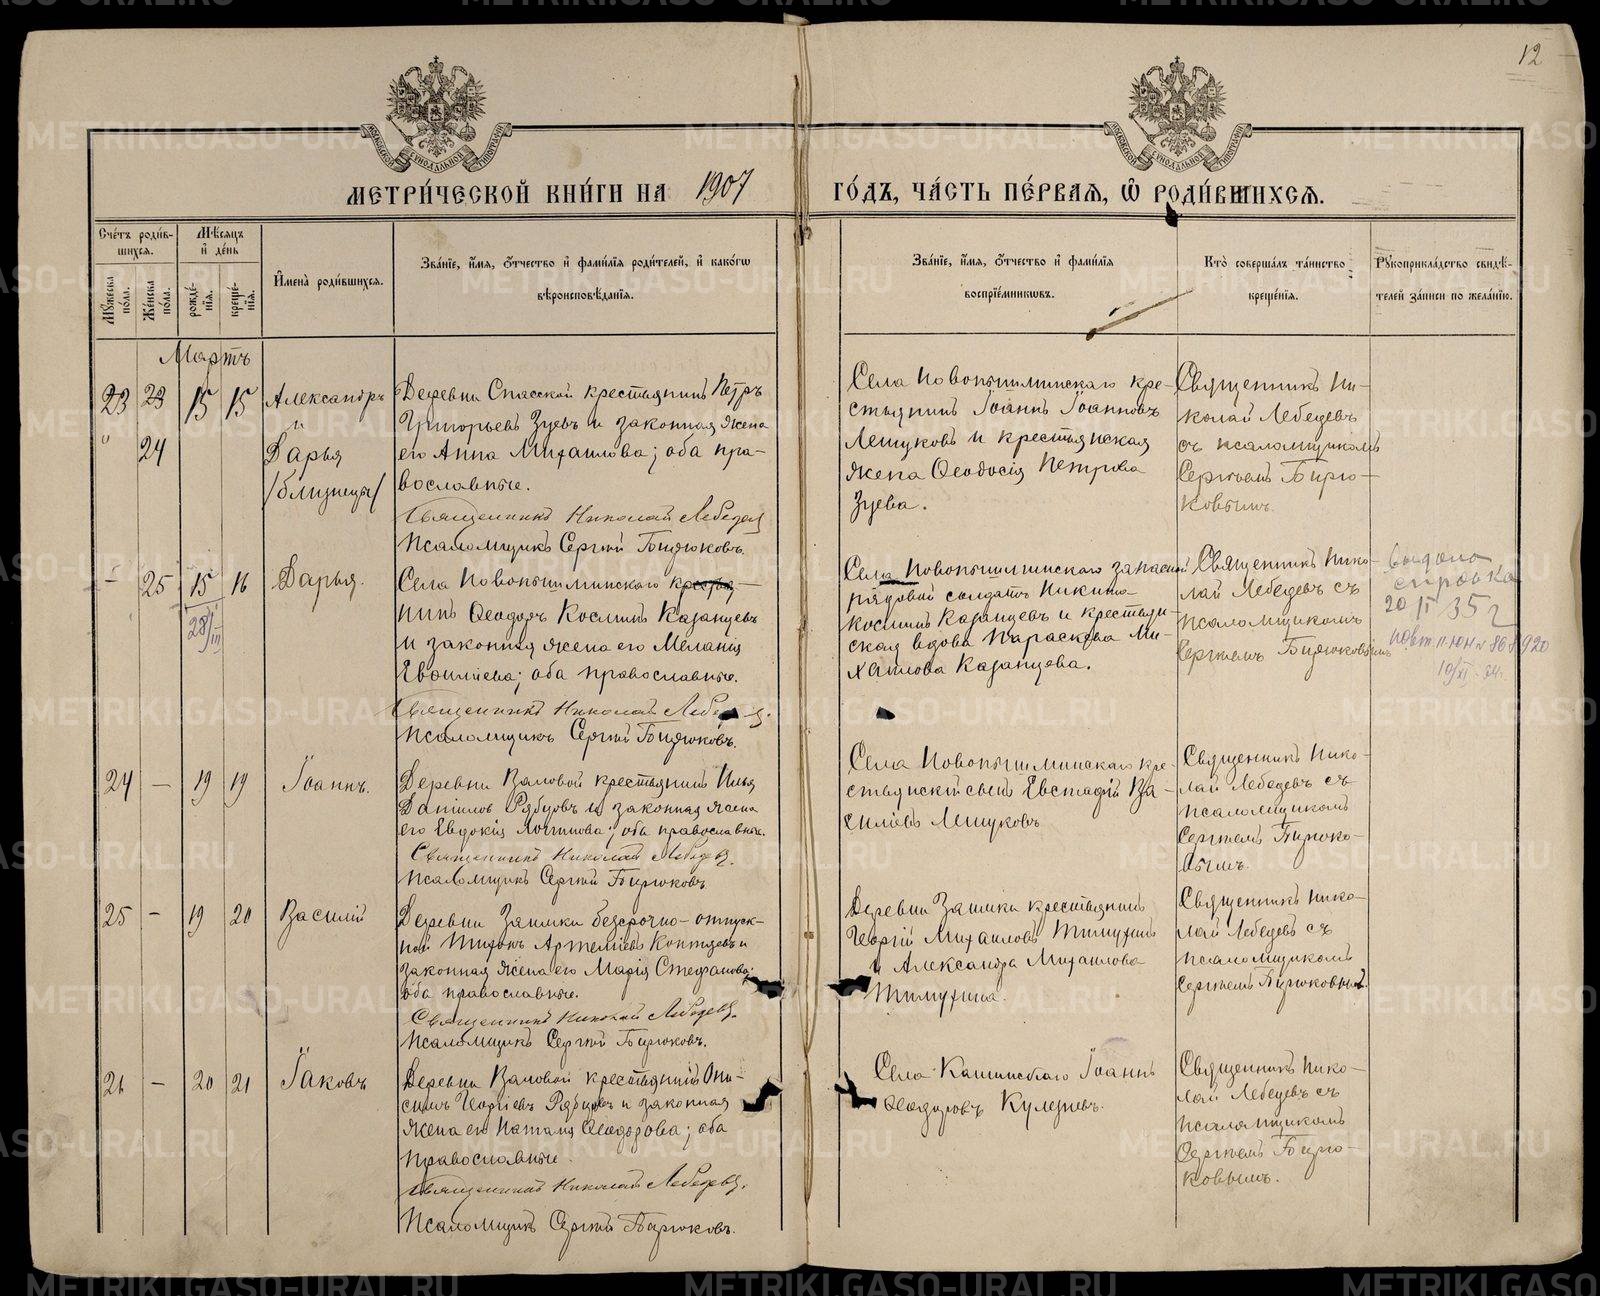 12
МЕТРИ́ЧЕСКОЙ КНИ́ГИ НА 1907 ГО́ДЪ, ЧА́СТЬ ПЕ́РВАЯ, Ѽ РОДИ́ВШИХСѦ.
Сче́тъ роди́вшихсѧ.
Мѣ́сѧцъ и҆ де́нь
Мꙋ́жеска по́ла.
Же́нска по́ла.
рожде́нїѧ.
креще́нїѧ.
И҆мена̀ роди́вшихсѧ.
Зва́нїе, и҆́мѧ, ѻ҆́тчество и҆ фами́лїѧ роди́телей, и҆ како́гѡ
вѣроисповѣ́данїѧ.
Зва́нїе, и҆́мѧ, ѻ҆́тчество и҆ фами́лїѧ
воспрїе́мникѡвъ.
Кто̀ соверша́лъ та́инство
креще́нїѧ.
Рꙋкоприкла́дство свидѣ́телей за́писи по жела́нїю.
Мартъ
23 23 15 15
" 24
Александръ
и
Дарья
/близнецы/
Деревни Спасской крестьянинъ Петръ
Григорьевъ Зуевъ и законная жена
его Анна Михаилова; оба пра-
вославные.
Священникъ Николай Лебедевъ
Псаломщикъ Сергій Бирюковъ.
Села Новопышминскаго кре-
стьянинъ Іоаннъ Іоанновъ
Лешуковъ и крестьянская
жена Ѳеодосія Петрова
Зуева.
Священникъ Ни-
колай Лебедевъ
съ псаломщикомъ
Сергіемъ Бирю-
ковымъ.
– 25 15 16
28/III
Дарья.
Села Новопышминскаго крестья-
нинъ Ѳеодоръ Косминъ Казанцевъ
и законная жена его Меланія
; оба православные.
Священникъ Николай Лебедевъ.
Псаломщикъ Сергій Бирюковъ.
Села Новопышминскаго запасной
рядовой солдатъ Никита
Косминъ Казанцевъ и крестьян-
ская вдова Параскева Ми-
хаилова Казанцева.
Священникъ Нико-
лай Лебедевъ съ
псаломщикомъ
Сергіемъ Бирюковымъ
выдана
справка
20 II 35 г
10/XI
24 – 19 19
Іоаннъ.
Деревни Валовой крестьянинъ Илья
Даніиловъ Рябцовъ и законная жена
его Евдокія Логинова; оба православные.
Священникъ Николай Лебедевъ.
Псаломщикъ Сергій Бирюковъ
Села Новопышминскаго кре-
стьянскій сынъ Евстафій Ва-
силіевъ Лешуковъ
Священникъ Нико-
лай Лебедевъ съ
псаломщикомъ
Сергіемъ Бирюко-
вымъ.
25 – 19 20
Василій
Деревни Заимки безсрочно-отпуск-
ной Тихонъ Артеміевъ и
законная жена его Марія Стефанова;
оба православные.
Священникъ Николай Лебедевъ.
Псаломщикъ Сергій Бирюковъ.
Деревни Заимки крестьянинъ
Георгій Михаиловъ
и Александра Михаилова
Священникъ Нико-
лай Лебедевъ съ
псаломщикомъ
Сергіемъ Бирюковымъ.
26 – 20 21
Іаковъ
Деревни Валовой крестьянинъ Они-
симъ Георгіевъ Рябцовъ и законная
жена его Наталія Ѳеодорова; оба
православные.
Священникъ Николай Лебедевъ.
Псаломщикъ Сергій Бирюковъ.
Села Кашинскаго Іоаннъ
Ѳеодоровъ
Священникъ Нико-
лай Лебедевъ съ
псаломщикомъ
Сергіемъ Бирю-
ковымъ.
METRIKI.GASO-URAL.RU